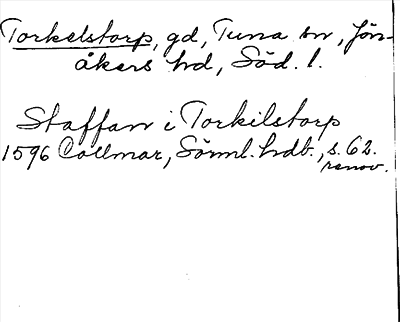 Torkelstorp, gd, Tuna sn, Jön-
åkers hd, Söd. l.
Staffan i Torkilstorp
1596 Collmar, Sörml. hdb., s. 62.
renov.